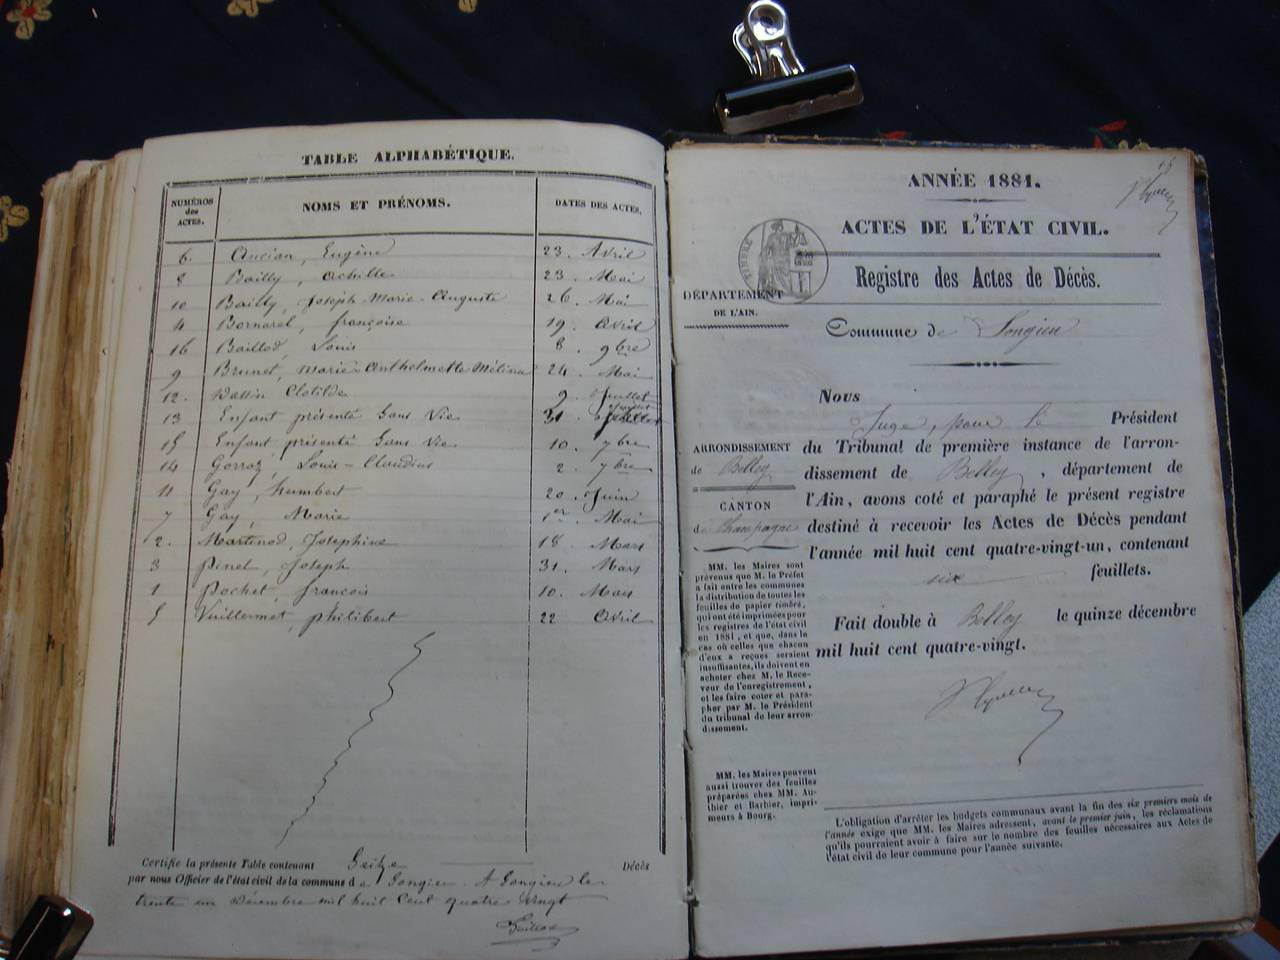 TABLE ALPHABÉTIQUE.
NUMÉROS des ACTES. NOMS ET PRÉNOMS. DATES DES ACTES.
6. Ancian, Eugène 23. Avril
8 Bailly, Achille 23. Mai
10 Bailly, Joseph Marie-Auguste 26. Mai
4 Bornarel, françoise 19. Avril
16 Baillod, Louis 8. 9bre
9 Brunet, Marie-Anthelmette Mélina 24. Mai
12. Bassin Clotilde 9. Juillet
13 Enfant présenté Sans Vie 31 Juillet
15 Enfant présenté Sans Vie 10. 7bre
14 Gorraz, Louis-Claudius 2. 7bre
11 Gay, humbert 20. Juin
7 Gay, Marie 1er Mai
2. Martinod, Joséphine 18 Mars
3 Pinet, Joseph 31. Mars
1 Pochet, françois 10. Mars
5 Vuillermet, philibert 22 Avril
Certifie la présente Table contenant Seize Décès
par nous Officier de l'état civil de la commune de Songieu. A Songieu le
trente un Décembre mil huit Cent quatre vingt
Baillod
ANNÉE 1881.
ACTES DE L'ÉTAT CIVIL.
TIMBRE
Registre des Actes de Décès.
DÉPARTEMENT
DE L'AIN.
Commune de Songieu
ARRONDISSEMENT
de Belley
CANTON
de Champagne
MM. les Maires sont
prévenus que M. le Préfet
a fait entre les communes
la distribution de toutes les
feuilles de papier timbré,
qui ont été imprimées pour
les registres de l'état civil
en 1881, et que, dans le
cas où celles que chacun
d'eux a reçues seraient
insuffisantes, ils doivent en
acheter chez M. le Rece-
veur de l'enregistrement,
et les faire coter et para-
pher par M. le Président
du tribunal de leur arron-
dissement.
MM. les Maires peuvent
aussi trouver des feuilles
préparées chez MM. Au-
thier et Barbier, impri-
meurs à Bourg.
Nous
Juge, pour le Président
du Tribunal de première instance de l'arron-
dissement de Belley, département de
l'Ain, avons coté et paraphé le présent registre
destiné à recevoir les Actes de Décès pendant
l'année mil huit cent quatre-vingt-un, contenant
six feuillets.
Fait double à Belley le quinze décembre
mil huit cent quatre-vingt.
L'obligation d'arrêter les budgets communaux avant la fin des six premiers mois de
l'année exige que MM. les Maires adressent, avant le premier juin, les réclamations
qu'ils pourraient avoir à faire sur le nombre des feuilles nécessaires aux Actes de
l'état civil de leur commune pour l'année suivante.